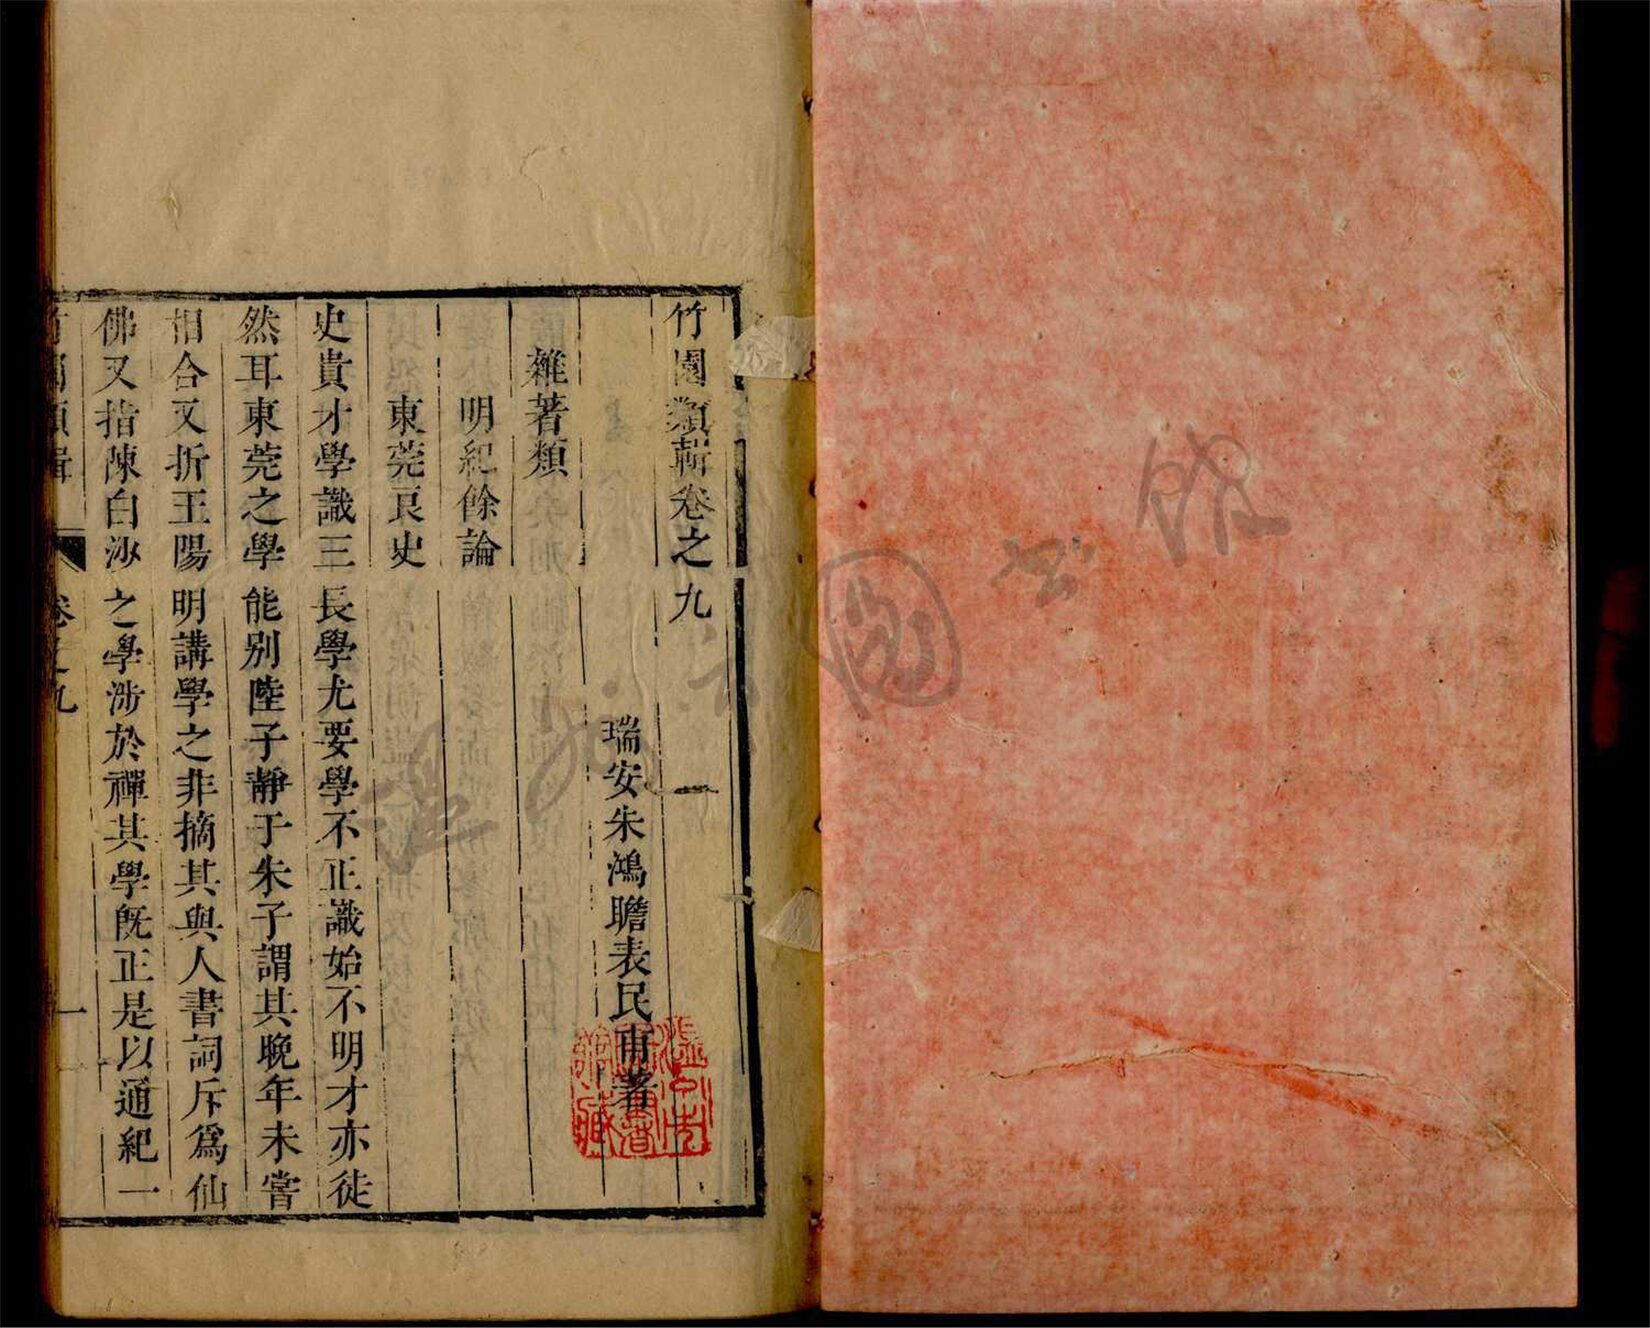 竹園類輯卷之九
瑞安朱鴻瞻表民甫著
雜著類
明紀餘論
東莞良史
史貴才學識三長學尤要學不正識始不明才亦徒
然耳東莞之學能别陸子靜于朱子謂其晚年未嘗
相合又折王陽明講學之非摘其與人書詞斥爲仙
佛又指陳白沙之學涉於禪其學旣正是以通紀一
卷之九
一